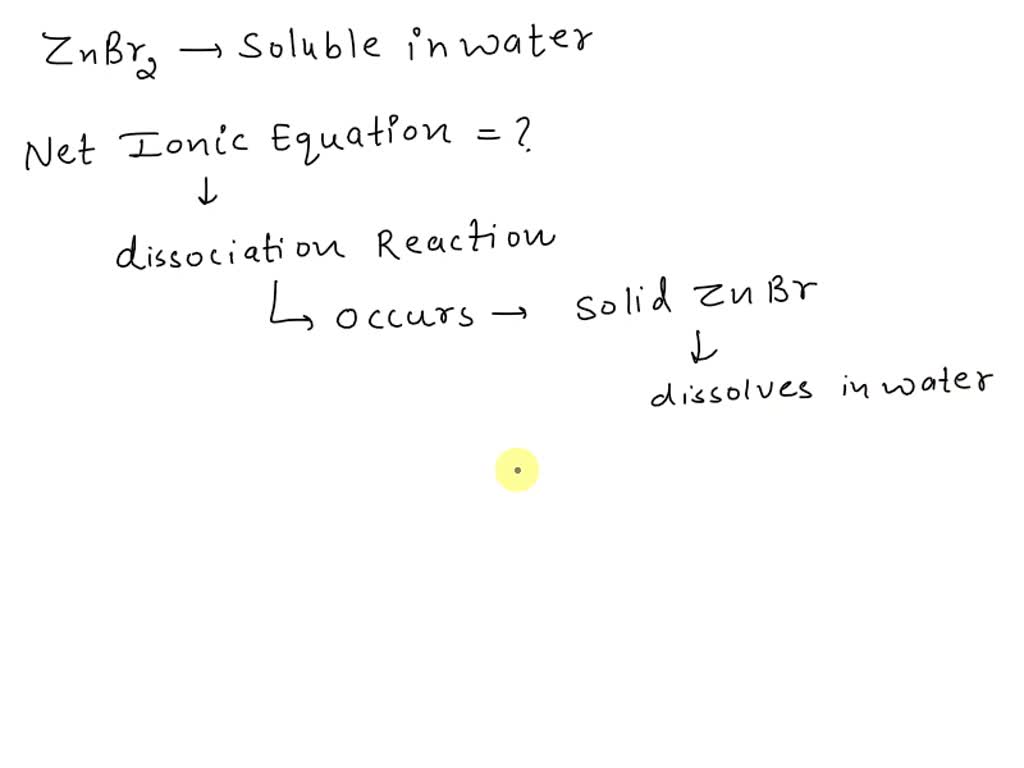 ZnBr₂ → Soluble in water
Net Ionic Equation = ?
↓
dissociation Reaction
↳ occurs → solid ZnBr
↓
dissolves in water